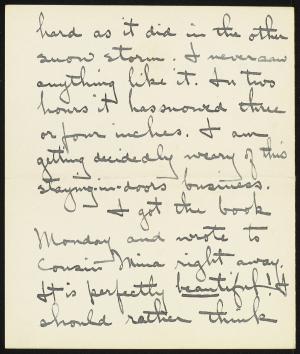 hard as it did in the other
snow storm. I never saw
anything like it. In two
hours it has snowed three
or four inches. I am
getting decidedly weary of this
staying-in-doors business.
I got the book
Monday and wrote to
Cousin Mina right away.
It is perfectly beautiful! I
should rather think